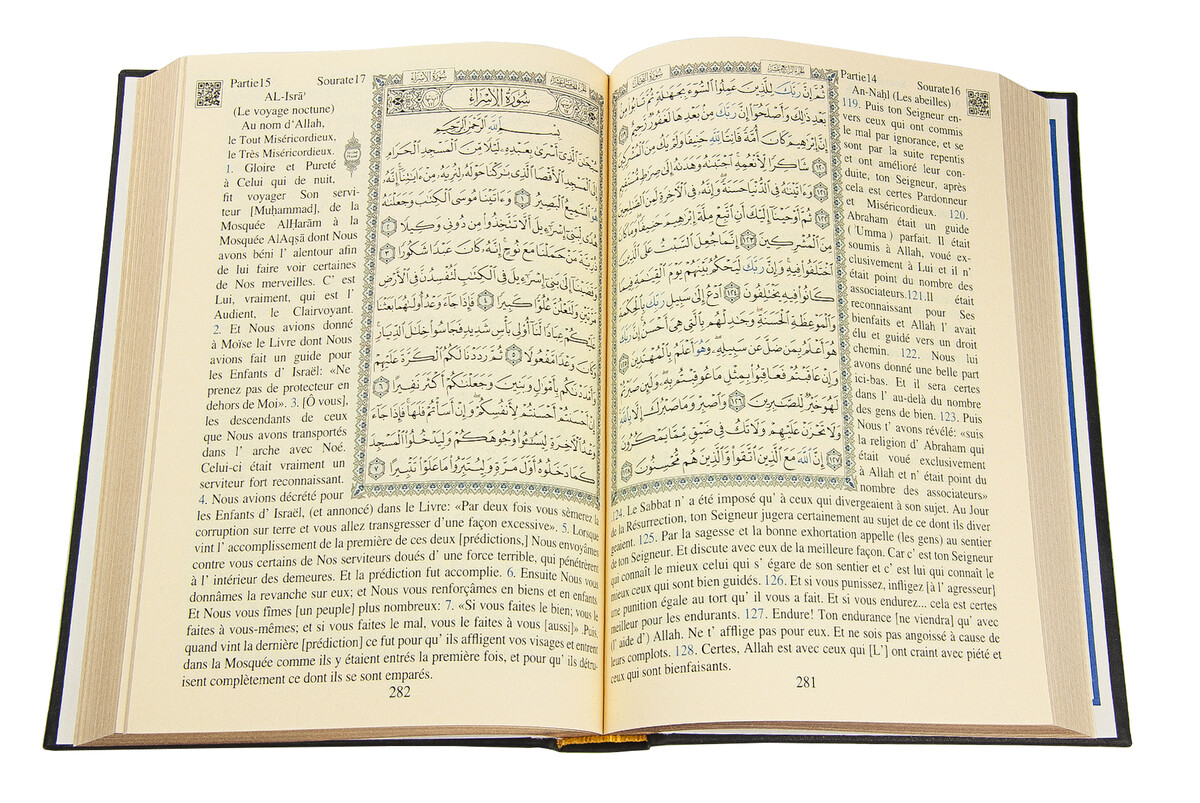 Partie14 Sourate16
An-Naḥl (Les abeilles)
119. Puis ton Seigneur en-
vers ceux qui ont commis
le mal par ignorance, et se
sont par la suite repentis
et ont amélioré leur con-
duite, ton Seigneur, après
cela est certes Pardonneur
et Miséricordieux. 120.
Abraham était un guide
('Umma) parfait. Il était
soumis à Allah, voué ex-
clusivement à Lui et il n'
était point du nombre des
associateurs.121.Il était
reconnaissant pour Ses
bienfaits et Allah l' avait
élu et guidé vers un droit
chemin. 122. Nous lui
avons donné une belle part
ici-bas. Et il sera certes
dans l' au-delà du nombre
des gens de bien. 123. Puis
Nous t' avons révélé: «suis
la religion d' Abraham qui
était voué exclusivement
à Allah et n' était point du
nombre des associateurs»
124. Le Sabbat n' a été imposé qu' à ceux qui divergeaient à son sujet. Au Jour
de la Résurrection, ton Seigneur jugera certainement au sujet de ce dont ils diver
geaient. 125. Par la sagesse et la bonne exhortation appelle (les gens) au sentier
de ton Seigneur. Et discute avec eux de la meilleure façon. Car c' est ton Seigneur
qui connaît le mieux celui qui s' égare de son sentier et c' est lui qui connaît le
mieux ceux qui sont bien guidés. 126. Et si vous punissez, infligez [à l' agresseur]
une punition égale au tort qu' il vous a fait. Et si vous endurez... cela est certes
meilleur pour les endurants. 127. Endure! Ton endurance [ne viendra] qu' avec
(l' aide d') Allah. Ne t' afflige pas pour eux. Et ne sois pas angoissé à cause de
leurs complots. 128. Certes, Allah est avec ceux qui [L'] ont craint avec piété et
ceux qui sont bienfaisants.
281
ثُمَّ إِنَّ رَبَّكَ لِلَّذِينَ عَمِلُوا۟ ٱلسُّوٓءَ بِجَهَٰلَةٍ ثُمَّ تَابُوا۟ مِنۢ
بَعْدِ ذَٰلِكَ وَأَصْلَحُوٓا۟ إِنَّ رَبَّكَ مِنۢ بَعْدِهَا لَغَفُورٌ رَّحِيمٌ
إِنَّ إِبْرَٰهِيمَ كَانَ أُمَّةً قَانِتًا لِّلَّهِ حَنِيفًا وَلَمْ يَكُ مِنَ ٱلْمُشْرِكِينَ
١٢٠ شَاكِرًا لِّأَنْعُمِهِ ٱجْتَبَىٰهُ وَهَدَىٰهُ إِلَىٰ صِرَٰطٍ مُّسْتَقِيمٍ
١٢١ وَءَاتَيْنَٰهُ فِى ٱلدُّنْيَا حَسَنَةً وَإِنَّهُۥ فِى ٱلْءَاخِرَةِ لَمِنَ ٱلصَّٰلِحِينَ
١٢٢ ثُمَّ أَوْحَيْنَآ إِلَيْكَ أَنِ ٱتَّبِعْ مِلَّةَ إِبْرَٰهِيمَ حَنِيفًا وَمَا كَانَ
مِنَ ٱلْمُشْرِكِينَ ١٢٣ إِنَّمَا جُعِلَ ٱلسَّبْتُ عَلَى ٱلَّذِينَ
ٱخْتَلَفُوا۟ فِيهِ وَإِنَّ رَبَّكَ لَيَحْكُمُ بَيْنَهُمْ يَوْمَ ٱلْقِيَٰمَةِ فِيمَا
كَانُوا۟ فِيهِ يَخْتَلِفُونَ ١٢٤ ٱدْعُ إِلَىٰ سَبِيلِ رَبِّكَ بِٱلْحِكْمَةِ
وَٱلْمَوْعِظَةِ ٱلْحَسَنَةِ وَجَٰدِلْهُم بِٱلَّتِى هِىَ أَحْسَنُ إِنَّ رَبَّكَ
هُوَ أَعْلَمُ بِمَن ضَلَّ عَن سَبِيلِهِۦ وَهُوَ أَعْلَمُ بِٱلْمُهْتَدِينَ ١٢٥
وَإِنْ عَاقَبْتُمْ فَعَاقِبُوا۟ بِمِثْلِ مَا عُوقِبْتُم بِهِۦ وَلَئِن صَبَرْتُمْ
لَهُوَ خَيْرٌ لِّلصَّٰبِرِينَ ١٢٦ وَٱصْبِرْ وَمَا صَبْرُكَ إِلَّا بِٱللَّهِ
وَلَا تَحْزَنْ عَلَيْهِمْ وَلَا تَكُ فِى ضَيْقٍ مِّمَّا يَمْكُرُونَ
١٢٧ إِنَّ ٱللَّهَ مَعَ ٱلَّذِينَ ٱتَّقَوا۟ وَّٱلَّذِينَ هُم مُّحْسِنُونَ ١٢٨
Partie15 Sourate17
AL-Isrā'
(Le voyage nocture)
Au nom d'Allah,
le Tout Miséricordieux.
le Très Miséricordieux.
1. Gloire et Pureté
à Celui qui de nuit,
fit voyager Son servi-
teur [Muḥammad], de la
Mosquée AlḤarām à la
Mosquée AlAqṣā dont Nous
avons béni l' alentour afin
de lui faire voir certaines
de Nos merveilles. C' est
Lui, vraiment, qui est l'
Audient, le Clairvoyant.
2. Et Nous avions donné
à Moïse le Livre dont Nous
avions fait un guide pour
les Enfants d' Israël: «Ne
prenez pas de protecteur en
dehors de Moi». 3. [Ô vous],
les descendants de ceux
que Nous avons transportés
dans l' arche avec Noé.
Celui-ci était vraiment un
serviteur fort reconnaissant.
4. Nous avions décrété pour
les Enfants d' Israël, (et annoncé) dans le Livre: «Par deux fois vous sèmerez la
corruption sur terre et vous allez transgresser d'une façon excessive». 5. Lorsque
vint l' accomplissement de la première de ces deux [prédictions,] Nous envoyâmes
contre vous certains de Nos serviteurs doués d' une force terrible, qui pénétrèrent
à l' intérieur des demeures. Et la prédiction fut accomplie. 6. Ensuite Nous vous
donnâmes la revanche sur eux; et Nous vous renforçâmes en biens et en enfants.
Et Nous vous fîmes [un peuple] plus nombreux: 7. «Si vous faites le bien; vous le
faites à vous-mêmes; et si vous faites le mal, vous le faites à vous [aussi]» .Puis,
quand vint la dernière [prédiction] ce fut pour qu' ils affligent vos visages et entrent
dans la Mosquée comme ils y étaient entrés la première fois, et pour qu' ils détru-
isent complètement ce dont ils se sont emparés.
282
سُورَةُ الإِسْرَاءِ
سُورَةُ الإِسْرَاءِ
بِسْمِ ٱللَّهِ ٱلرَّحْمَٰنِ ٱلرَّحِيمِ
سُبْحَٰنَ ٱلَّذِىٓ أَسْرَىٰ بِعَبْدِهِۦ لَيْلًا مِّنَ ٱلْمَسْجِدِ ٱلْحَرَامِ
إِلَى ٱلْمَسْجِدِ ٱلْأَقْصَا ٱلَّذِى بَٰرَكْنَا حَوْلَهُۥ لِنُرِيَهُۥ مِنْ ءَايَٰتِنَآ إِنَّهُۥ
هُوَ ٱلسَّمِيعُ ٱلْبَصِيرُ ١ وَءَاتَيْنَا مُوسَى ٱلْكِتَٰبَ وَجَعَلْنَٰهُ
هُدًى لِّبَنِىٓ إِسْرَٰٓءِيلَ أَلَّا تَتَّخِذُوا۟ مِن دُونِى وَكِيلًا ٢
ذُرِّيَّةَ مَنْ حَمَلْنَا مَعَ نُوحٍ إِنَّهُۥ كَانَ عَبْدًا شَكُورًا ٣
وَقَضَيْنَآ إِلَىٰ بَنِىٓ إِسْرَٰٓءِيلَ فِى ٱلْكِتَٰبِ لَتُفْسِدُنَّ فِى ٱلْأَرْضِ
مَرَّتَيْنِ وَلَتَعْلُنَّ عُلُوًّا كَبِيرًا ٤ فَإِذَا جَآءَ وَعْدُ أُولَىٰهُمَا بَعَثْنَا
عَلَيْكُمْ عِبَادًا لَّنَآ أُو۟لِى بَأْسٍ شَدِيدٍ فَجَاسُوا۟ خِلَٰلَ ٱلدِّيَارِ
وَكَانَ وَعْدًا مَّفْعُولًا ٥ ثُمَّ رَدَدْنَا لَكُمُ ٱلْكَرَّةَ عَلَيْهِمْ
وَأَمْدَدْنَٰكُم بِأَمْوَٰلٍ وَبَنِينَ وَجَعَلْنَٰكُمْ أَكْثَرَ نَفِيرًا ٦
إِنْ أَحْسَنتُمْ أَحْسَنتُمْ لِأَنفُسِكُمْ وَإِنْ أَسَأْتُمْ فَلَهَا فَإِذَا جَآءَ
وَعْدُ ٱلْءَاخِرَةِ لِيَسُۥٓـُٔوا۟ وُجُوهَكُمْ وَلِيَدْخُلُوا۟ ٱلْمَسْجِدَ
كَمَا دَخَلُوهُ أَوَّلَ مَرَّةٍ وَلِيُتَبِّرُوا۟ مَا عَلَوْا۟ تَتْبِيرًا ٧